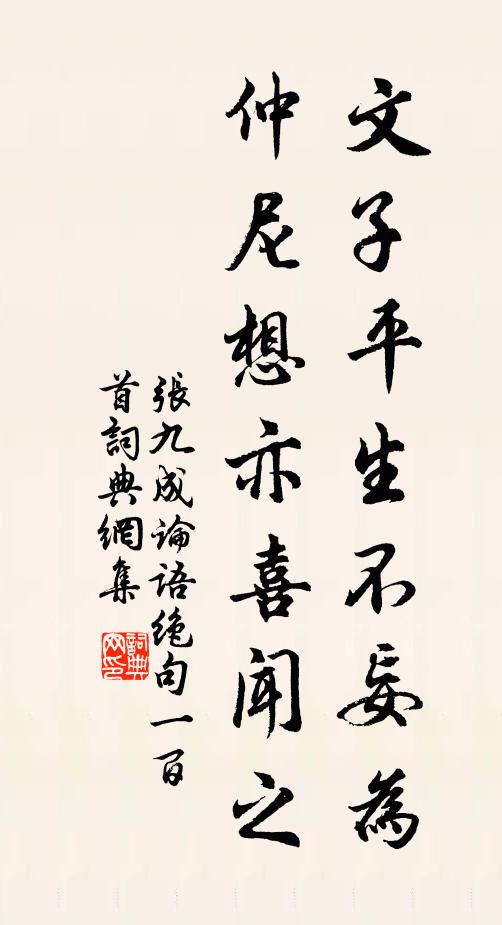 文子平生不妄為
仲尼想亦喜聞之
張九成論語絕句一百
首詞典網集
詞典网印